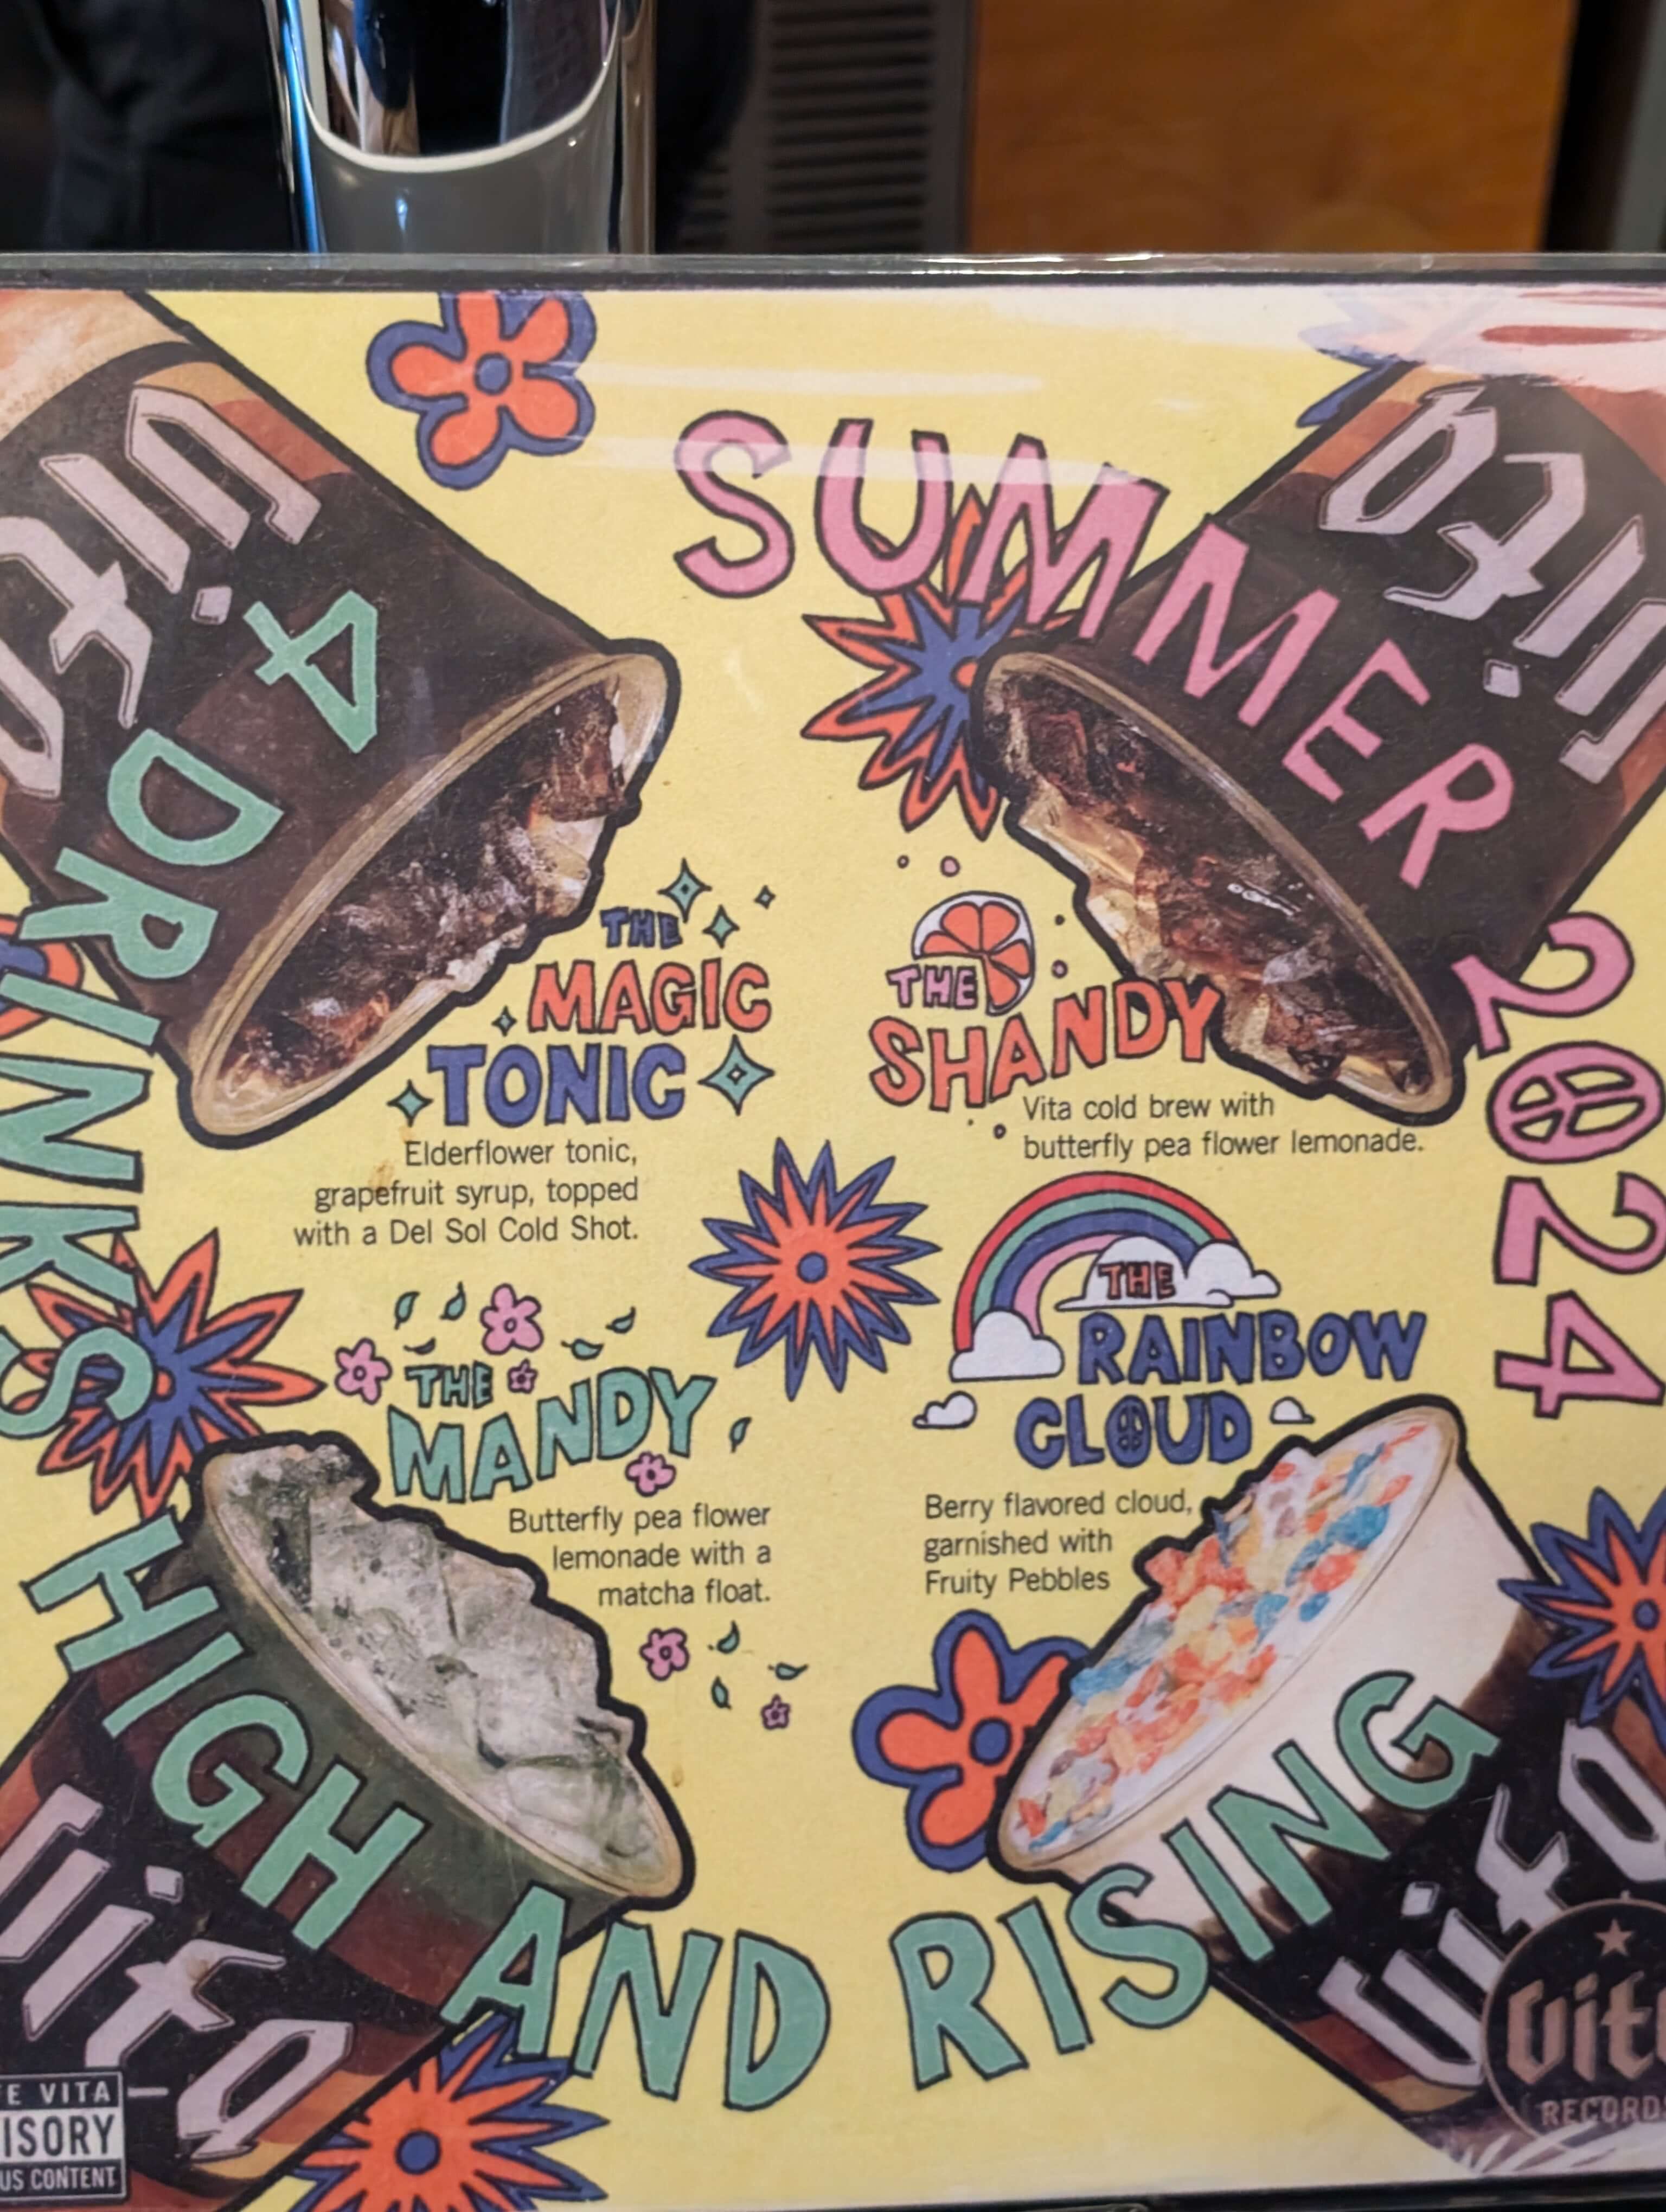 SUMMER
2024
4 DRINKS
HIGH AND RISING
Vita
Vita
THE
MAGIC
TONIC
Elderflower tonic,
grapefruit syrup, topped
with a Del Sol Cold Shot.
THE
SHANDY
Vita cold brew with
butterfly pea flower lemonade.
THE
MANDY
Butterfly pea flower
lemonade with a
matcha float.
THE
RAINBOW
CLOUD
Berry flavored cloud,
garnished with
Fruity Pebbles
Vita
Vita
VITA
CONTENT